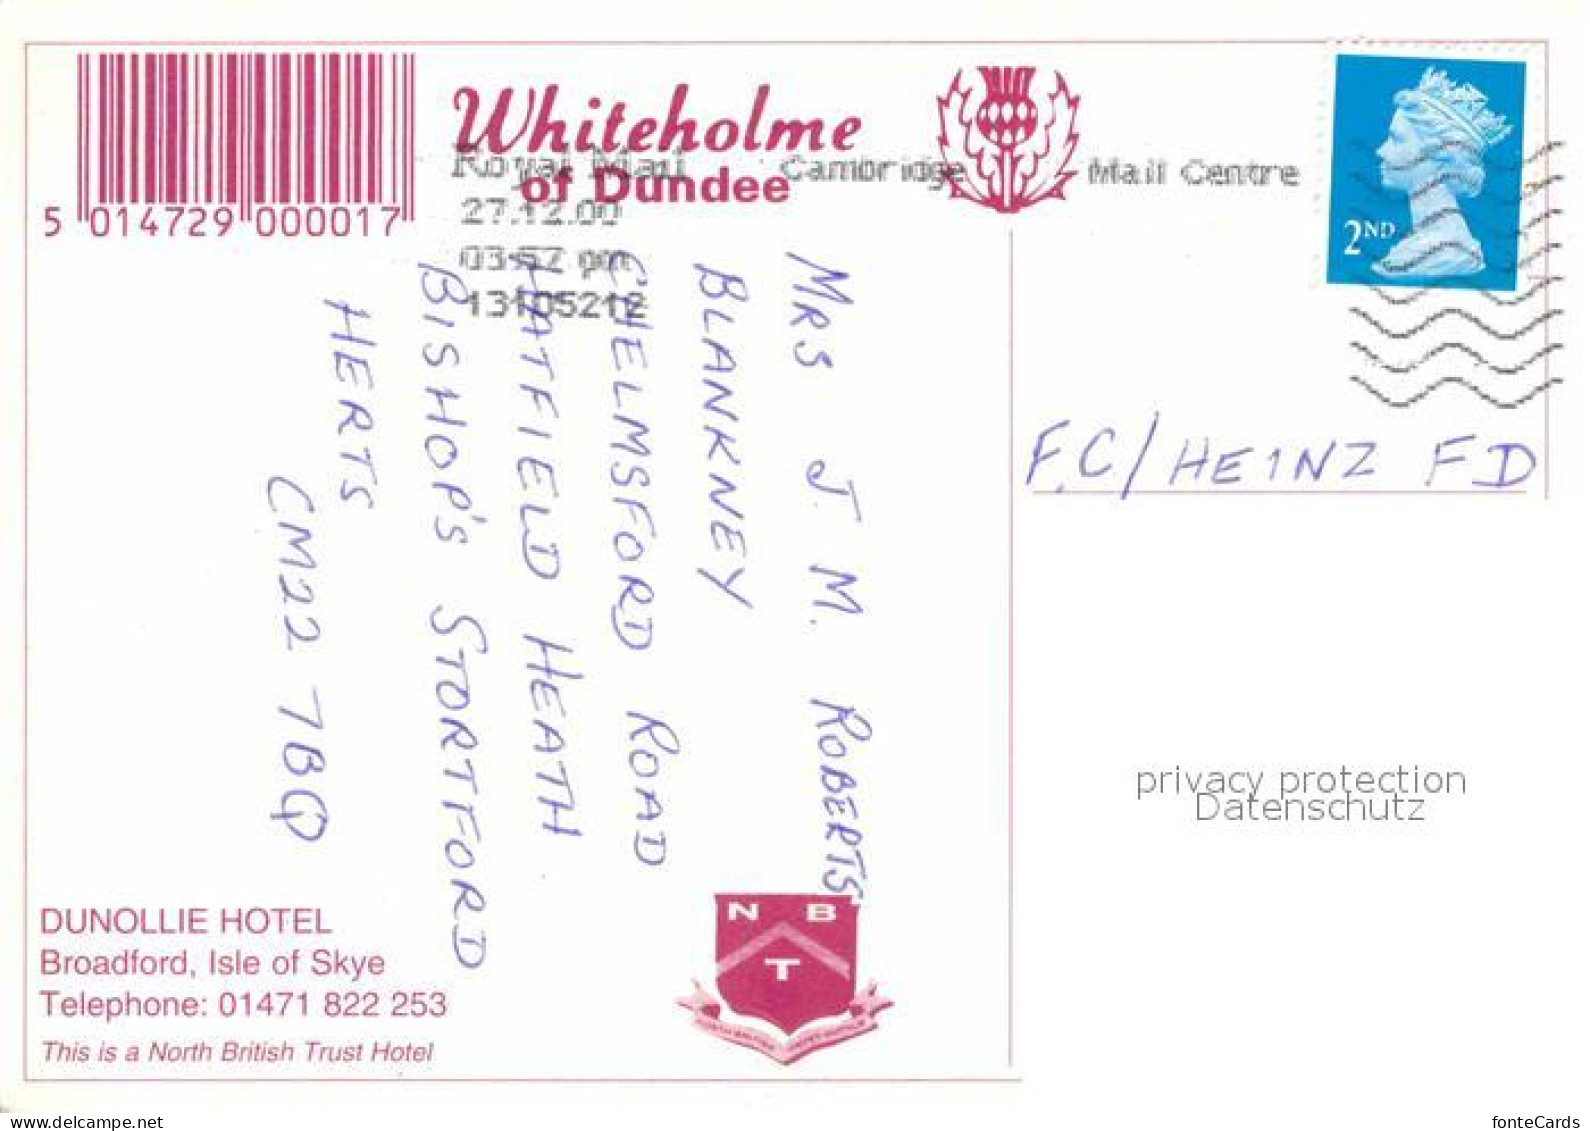 Whiteholme
of Dundee
5 014729 000017
Royal Mail Cambridge Mail Centre
27.12.00
03:52 pm
13105212
2ND
MRS J. M. ROBERTS
BLANKNEY
CHELMSFORD ROAD
HATFIELD HEATH
BISHOP'S STORTFORD
HERTS
CM22 7BQ
F.C/HEINZ FD
privacy protection
Datenschutz
N B
T
DUNOLLIE HOTEL
Broadford, Isle of Skye
Telephone: 01471 822 253
This is a North British Trust Hotel
www.delcampe.net
fonteCards